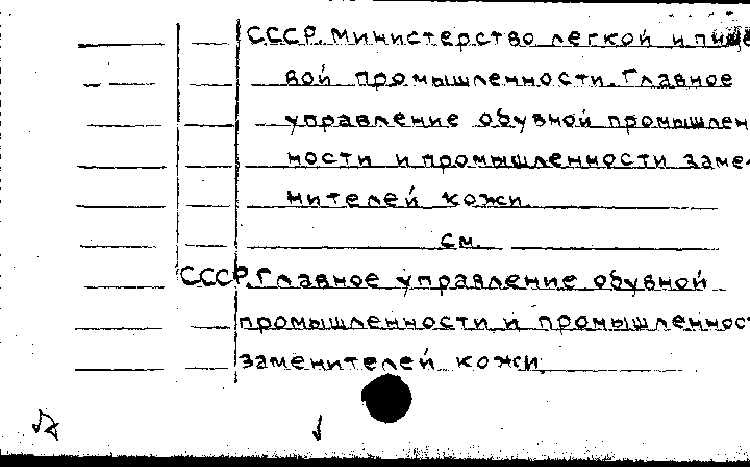 СССР. Министерство легкой и пище
вой промышленности. Главное
управление обувной промышлен
ности и промышленности заме-
нителей кожи.
см.
СССР. Главное управление обувной
промышленности и промышленнос
заменителей кожи.